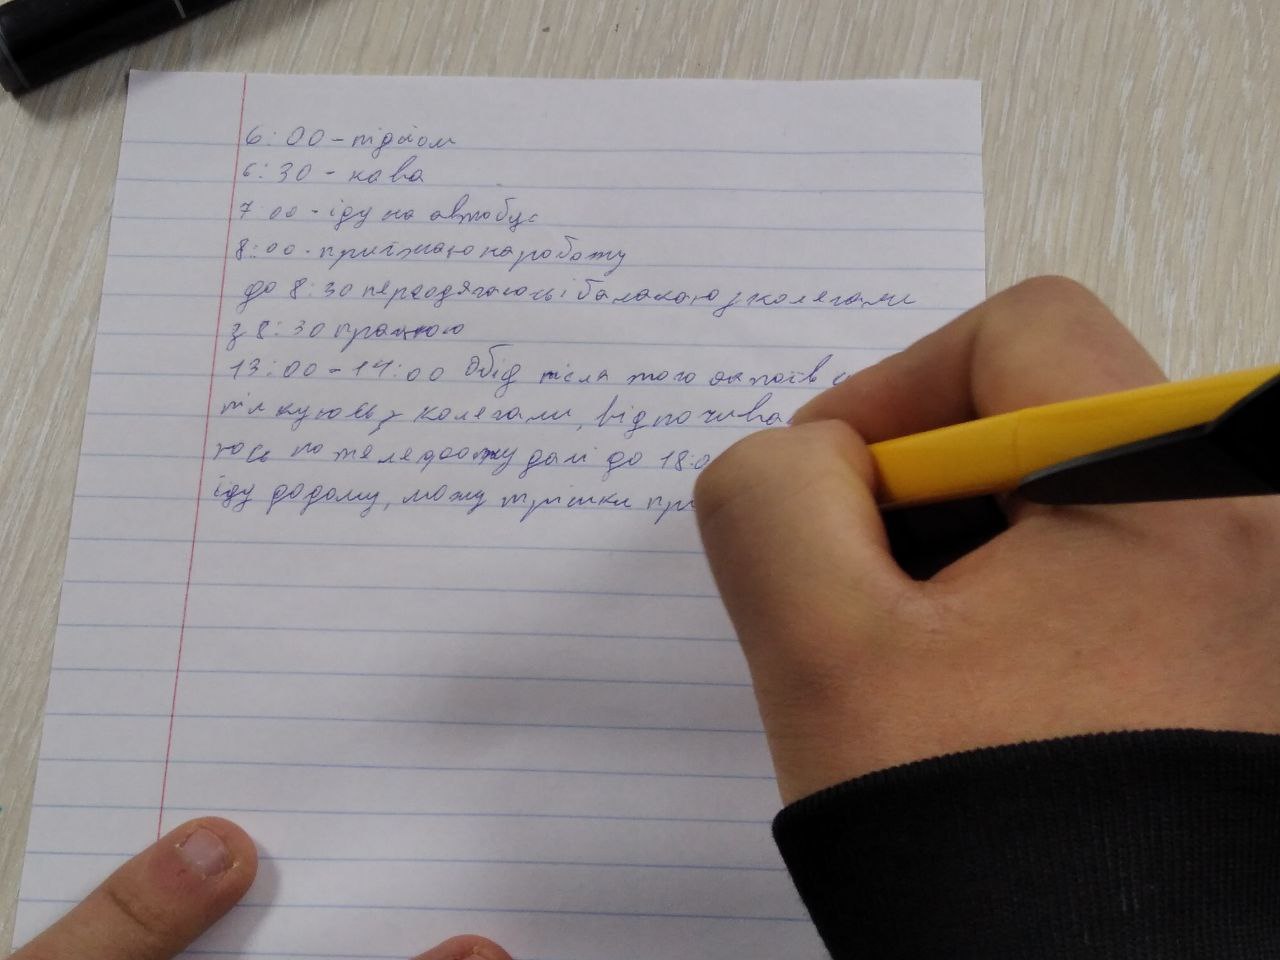 6:00 - підйом
6:30 - кава
7:00 - іду на автобус
8:00 - приїжаю на роботу
до 8:30 переодягаюсь і балакаю з колегами
з 8:30 працюю
13:00 - 14:00 Обід після того як поїв
тілкуюсь з колегами, відпочиваю
юсь по телефону далі до 18:0
іду додому, можу трішки